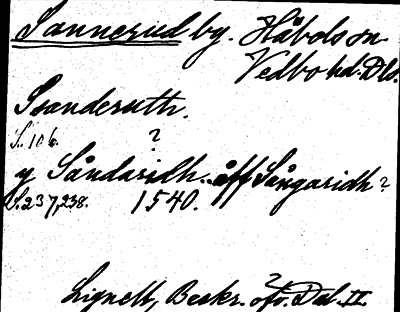 Sannerud by. Håbols sn.
Vedbo hd. Dls.
Ssanderuth.
S. 106. ?
y Såndaridh. åff Sångaridh?
S. 237, 238. 1540.
Lignell, Beskr. ofv. Dal. II.